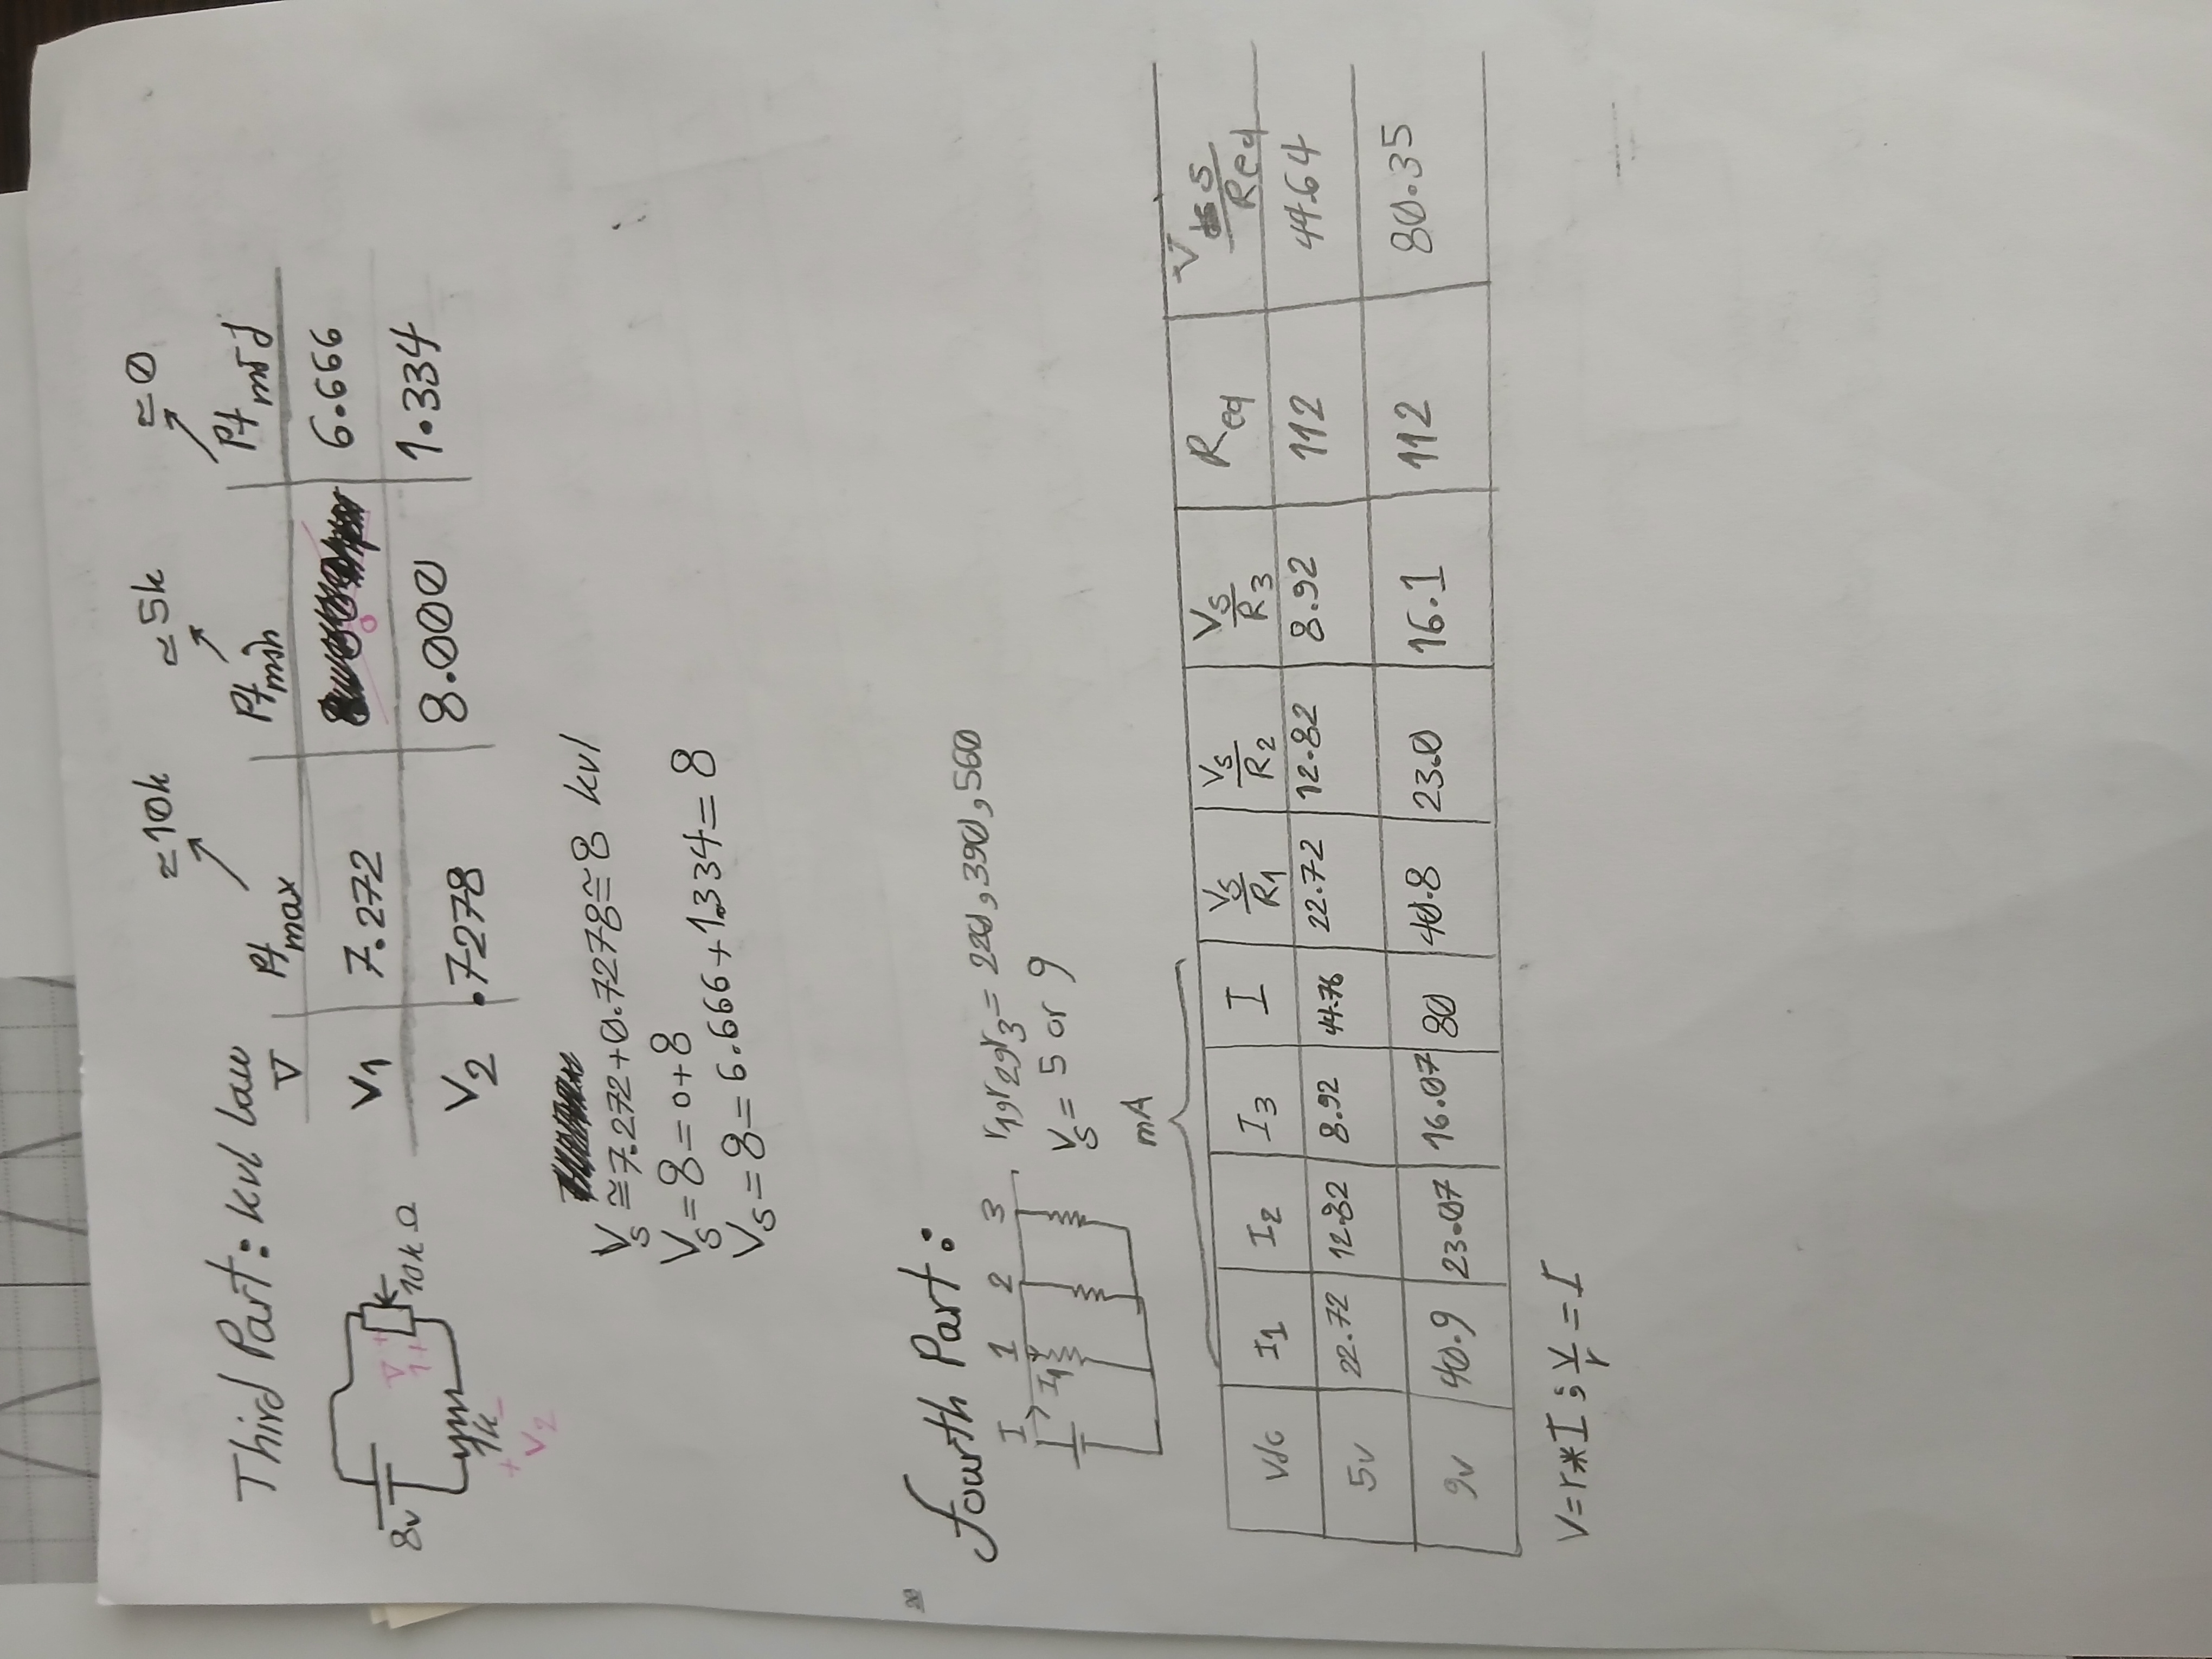 Third Part: kvl law
≈10k ≈5k ≈0
V Pt max Pt min Pt mid
8v
10k Ω
1k
V1 7.272 0 6.666
V2 .7278 8.000 1.334
+ V2 -
Vs ≅ 7.272+0.7278≅8 kvl
Vs = 8 = 0+8
Vs = 8 = 6.666+1.334= 8
Fourth Part:
I I1 1 2 3
r1,r2,r3 = 220,390,560
Vs = 5 or 9
mA
Vdc I1 I2 I3 I Vs/R1 Vs/R2 Vs/R3 Req Vs/Req
5v 22.72 12.82 8.92 44.76 22.72 12.82 8.92 112 44.64
9v 40.9 23.07 16.07 80 40.8 23.0 16.1 112 80.35
V=r*I ; V/r = I